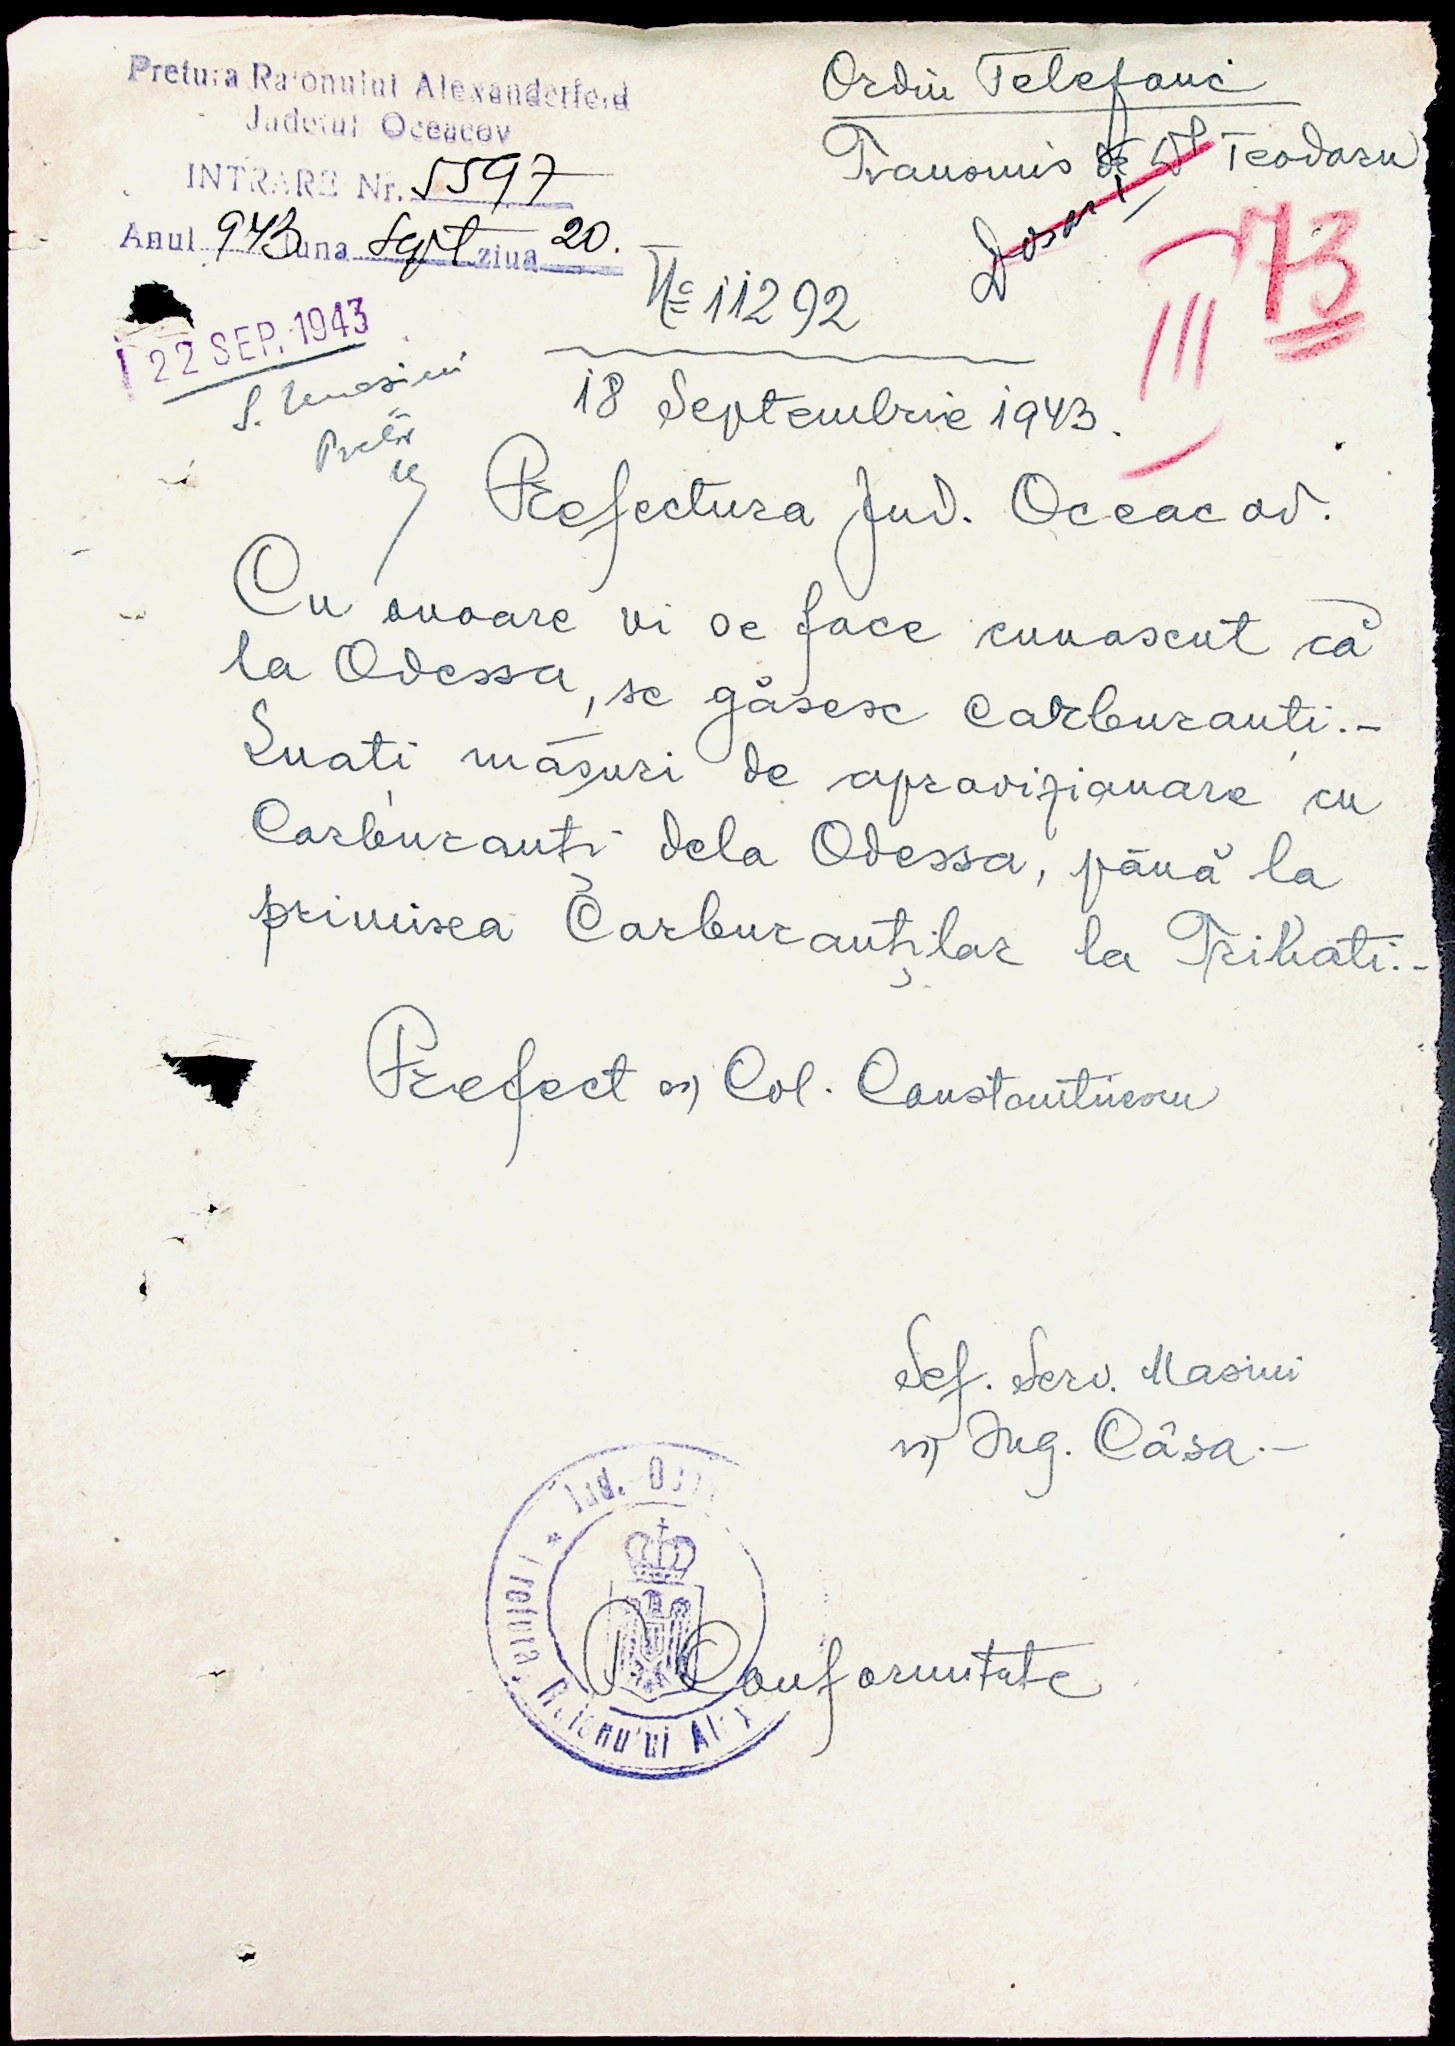 Pretura Raionului Alexanderfeld
Judetul Oceacov
INTRARE Nr. 5597
Anul 943 luna Sept ziua 20.
22 SEP. 1943
Ordin Telefonic
Transmis de Teodoru
Dosar
III 73
№ 11292
18 Septembrie 1943.
Prefectura Jud. Oceacov.
Cu onoare vi se face cunoscut că
la Odessa, se găsesc carburanți.-
Luati măsuri de aprovizionare cu
Carburanți dela Odessa, până la
primirea Carburanților la Trihati.-
Prefect ss) Col. Constantinescu
Sef. Serv. Masini
ss) Ing. Căsa.-
Jud.
Pretura Raionului Alex
Conformitate